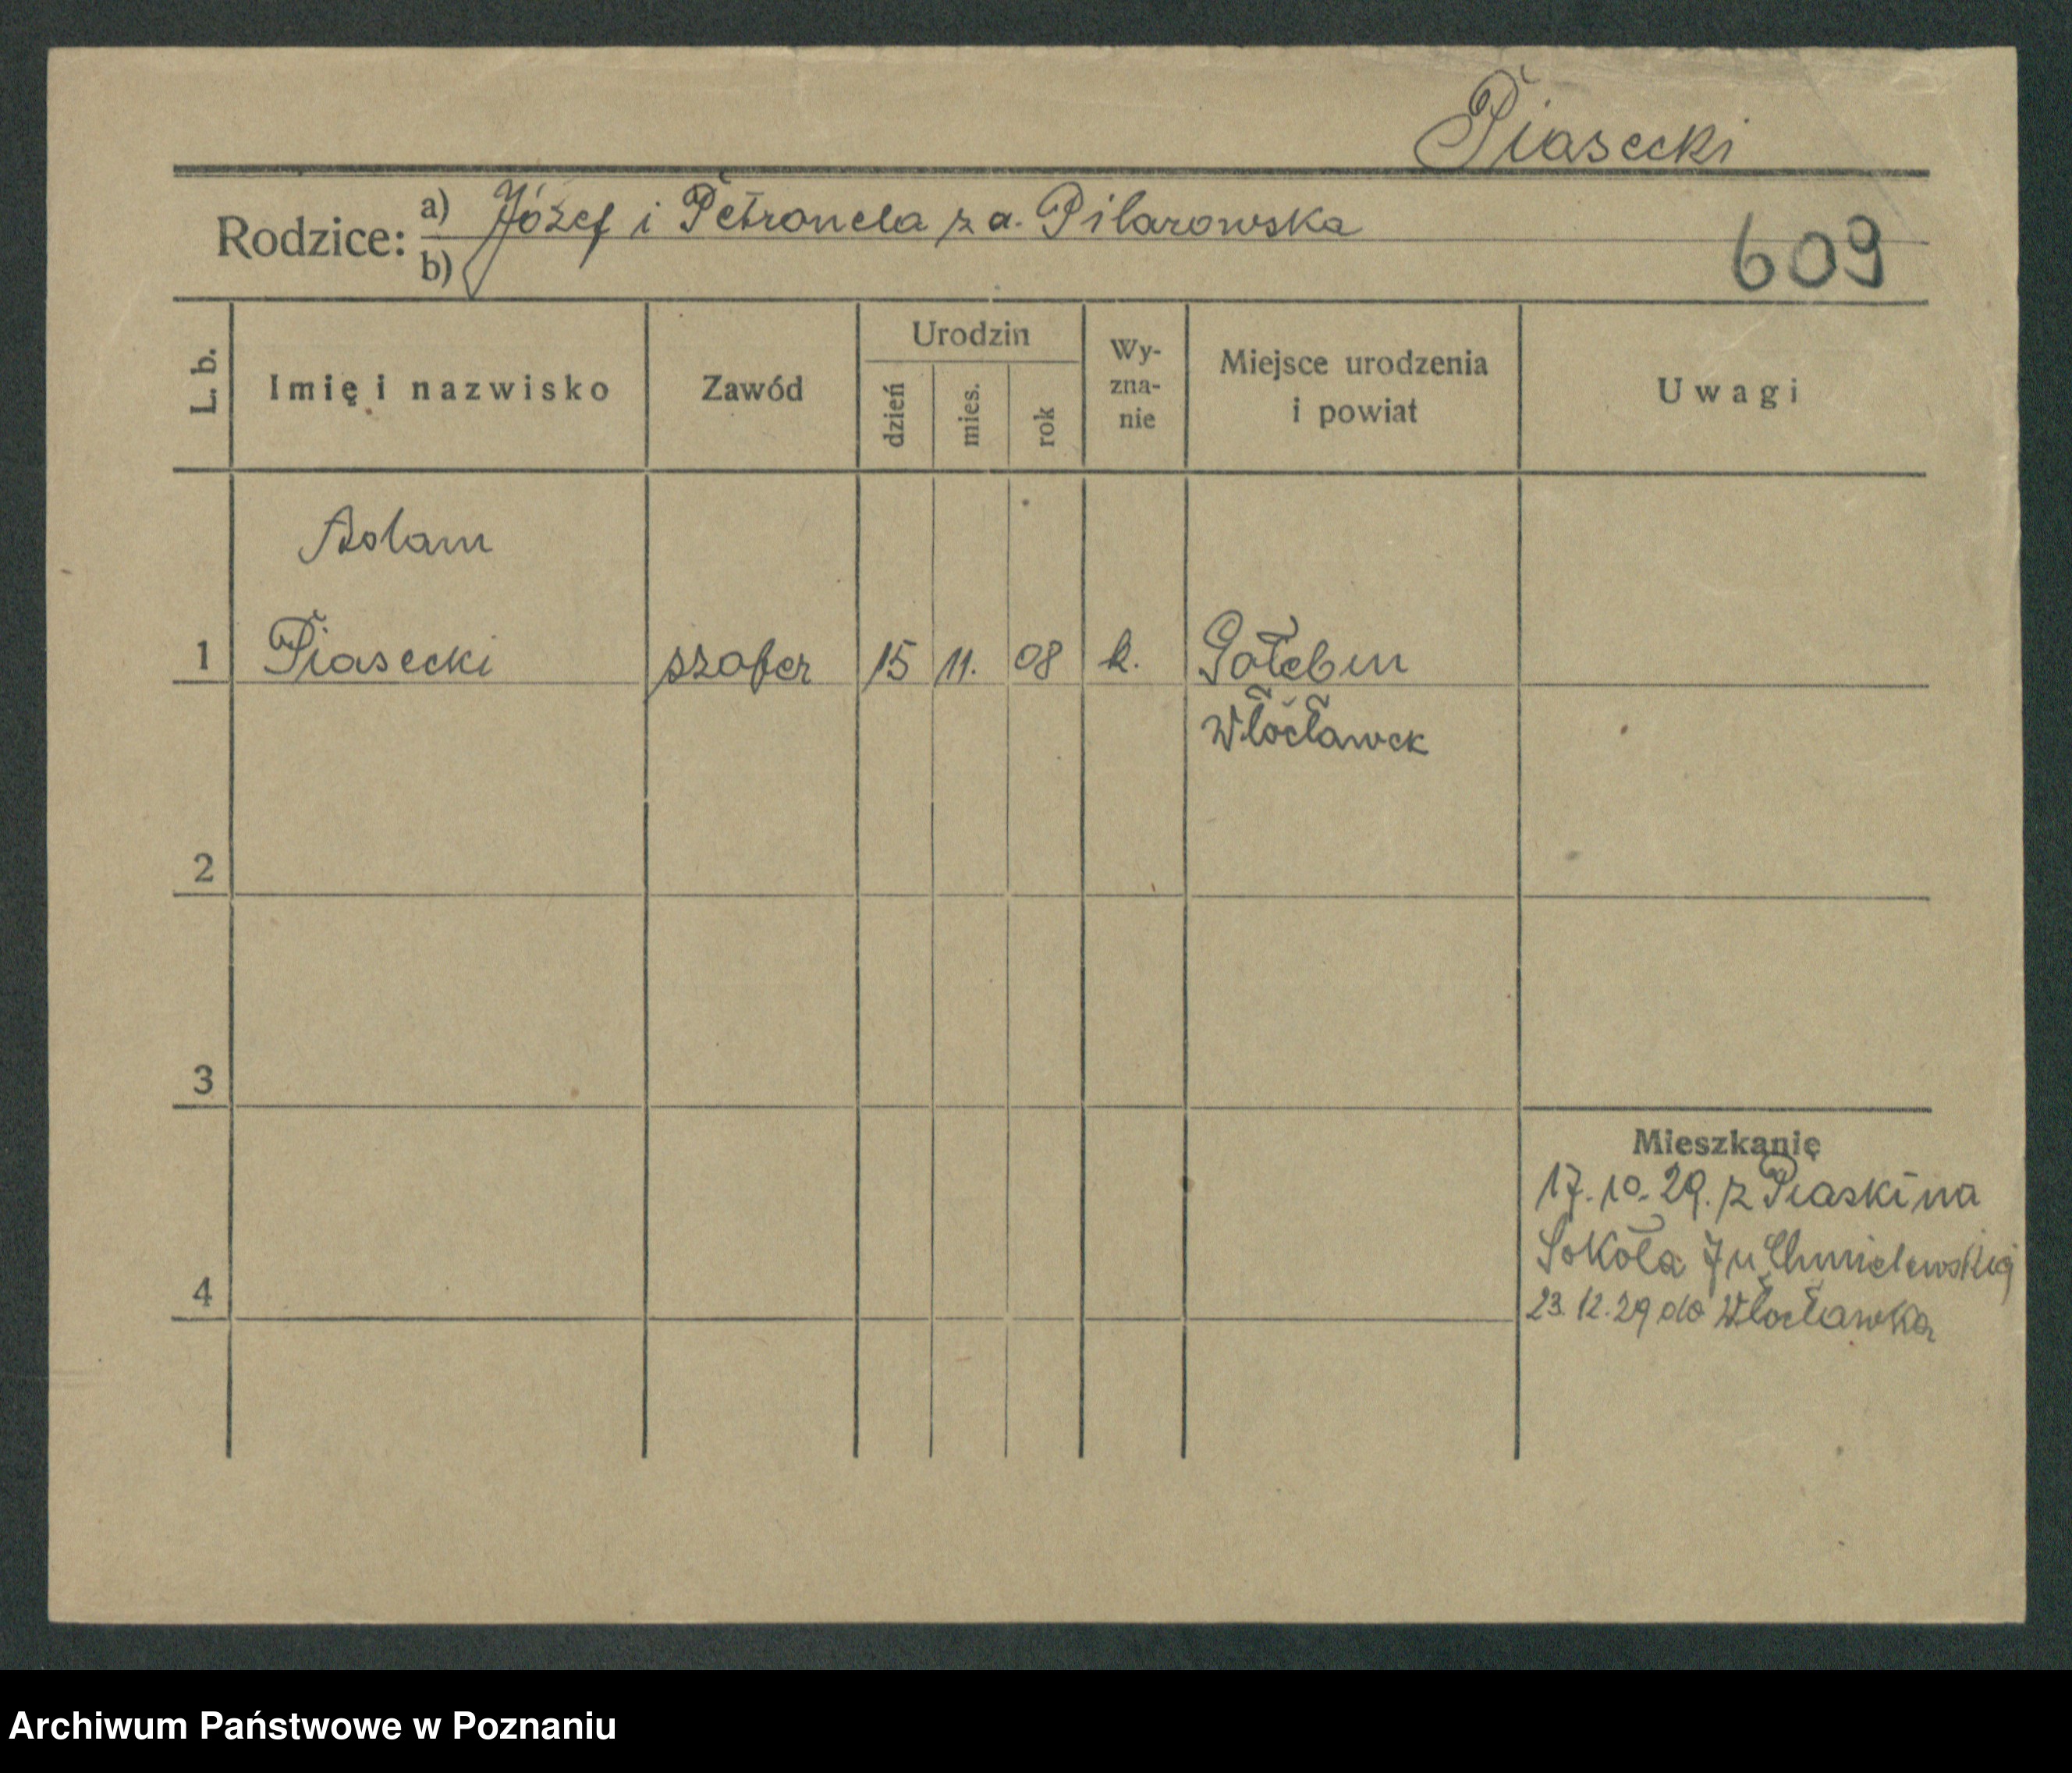 Piasecki
Rodzice: a) Józef i Petronela z d. Pilarowska
b)
609
L. b.
Imię i nazwisko
Zawód
Urodzin
dzień
mies.
rok
Wy-
zna-
nie
Miejsce urodzenia
i powiat
Uwagi
Adam
1 Piasecki szofer 15 11. 08 k. Gołebin
Włocławek
2
3
4
Mieszkanie
17.10.29. z Piaski na
Sokoła 7 u Chmielewskiej
23.12.29 do Włocławka
Archiwum Państwowe w Poznaniu